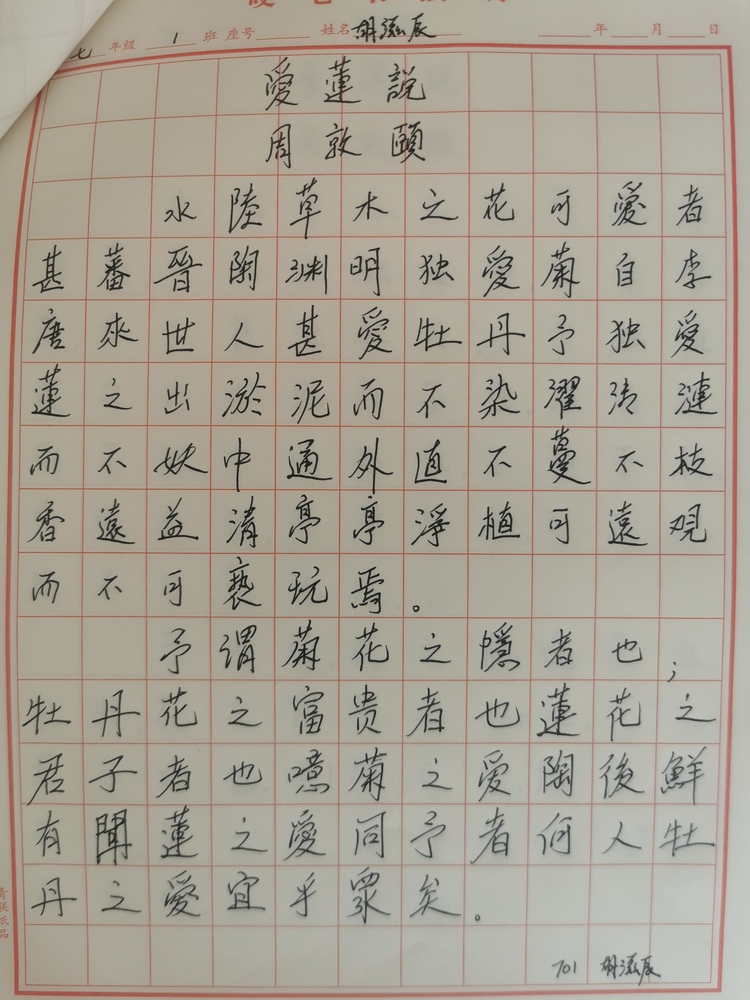 七 年级 1 班 座号 姓名 胡滋辰 年 月 日
愛蓮説
周敦頤
水陸草木之花可愛者
甚蕃晉陶渊明独愛菊自李
唐來世人甚愛牡丹予独愛
蓮之出淤泥而不染濯清漣
而不妖中通外直不蔓不枝
香遠益清亭亭淨植可遠观
而不可褻玩焉。
予谓菊花之隱者也;
牡丹花之富贵者也蓮花之
君子者也噫菊之愛陶後鮮
有聞蓮之愛同予者何人牡
丹之愛宜乎眾矣。
701 胡滋辰